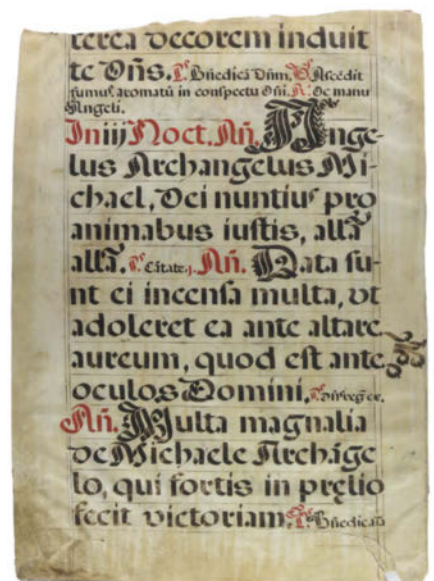 terea decorem induit
te Dñs. Ps. Bñedicā Dñm, ℣. Ascedit
fumus aromatū in conspectu Dñi. ℟. De manu
Angeli.
In iij Noct. Añ. Ange-
lus Archangelus Mi-
chael, Dei nuntius pro
animabus iustis, allā
allā. Ps. Cātate. j. Añ. Data su-
nt ei incensa multa, vt
adoleret ea ante altare
aureum, quod est ante
oculos Domini. Ps.
Añ. Multa magnalia
de Michaele Archāge
lo, qui fortis in pręlio
fecit victoriam. Ps. Bñedicā